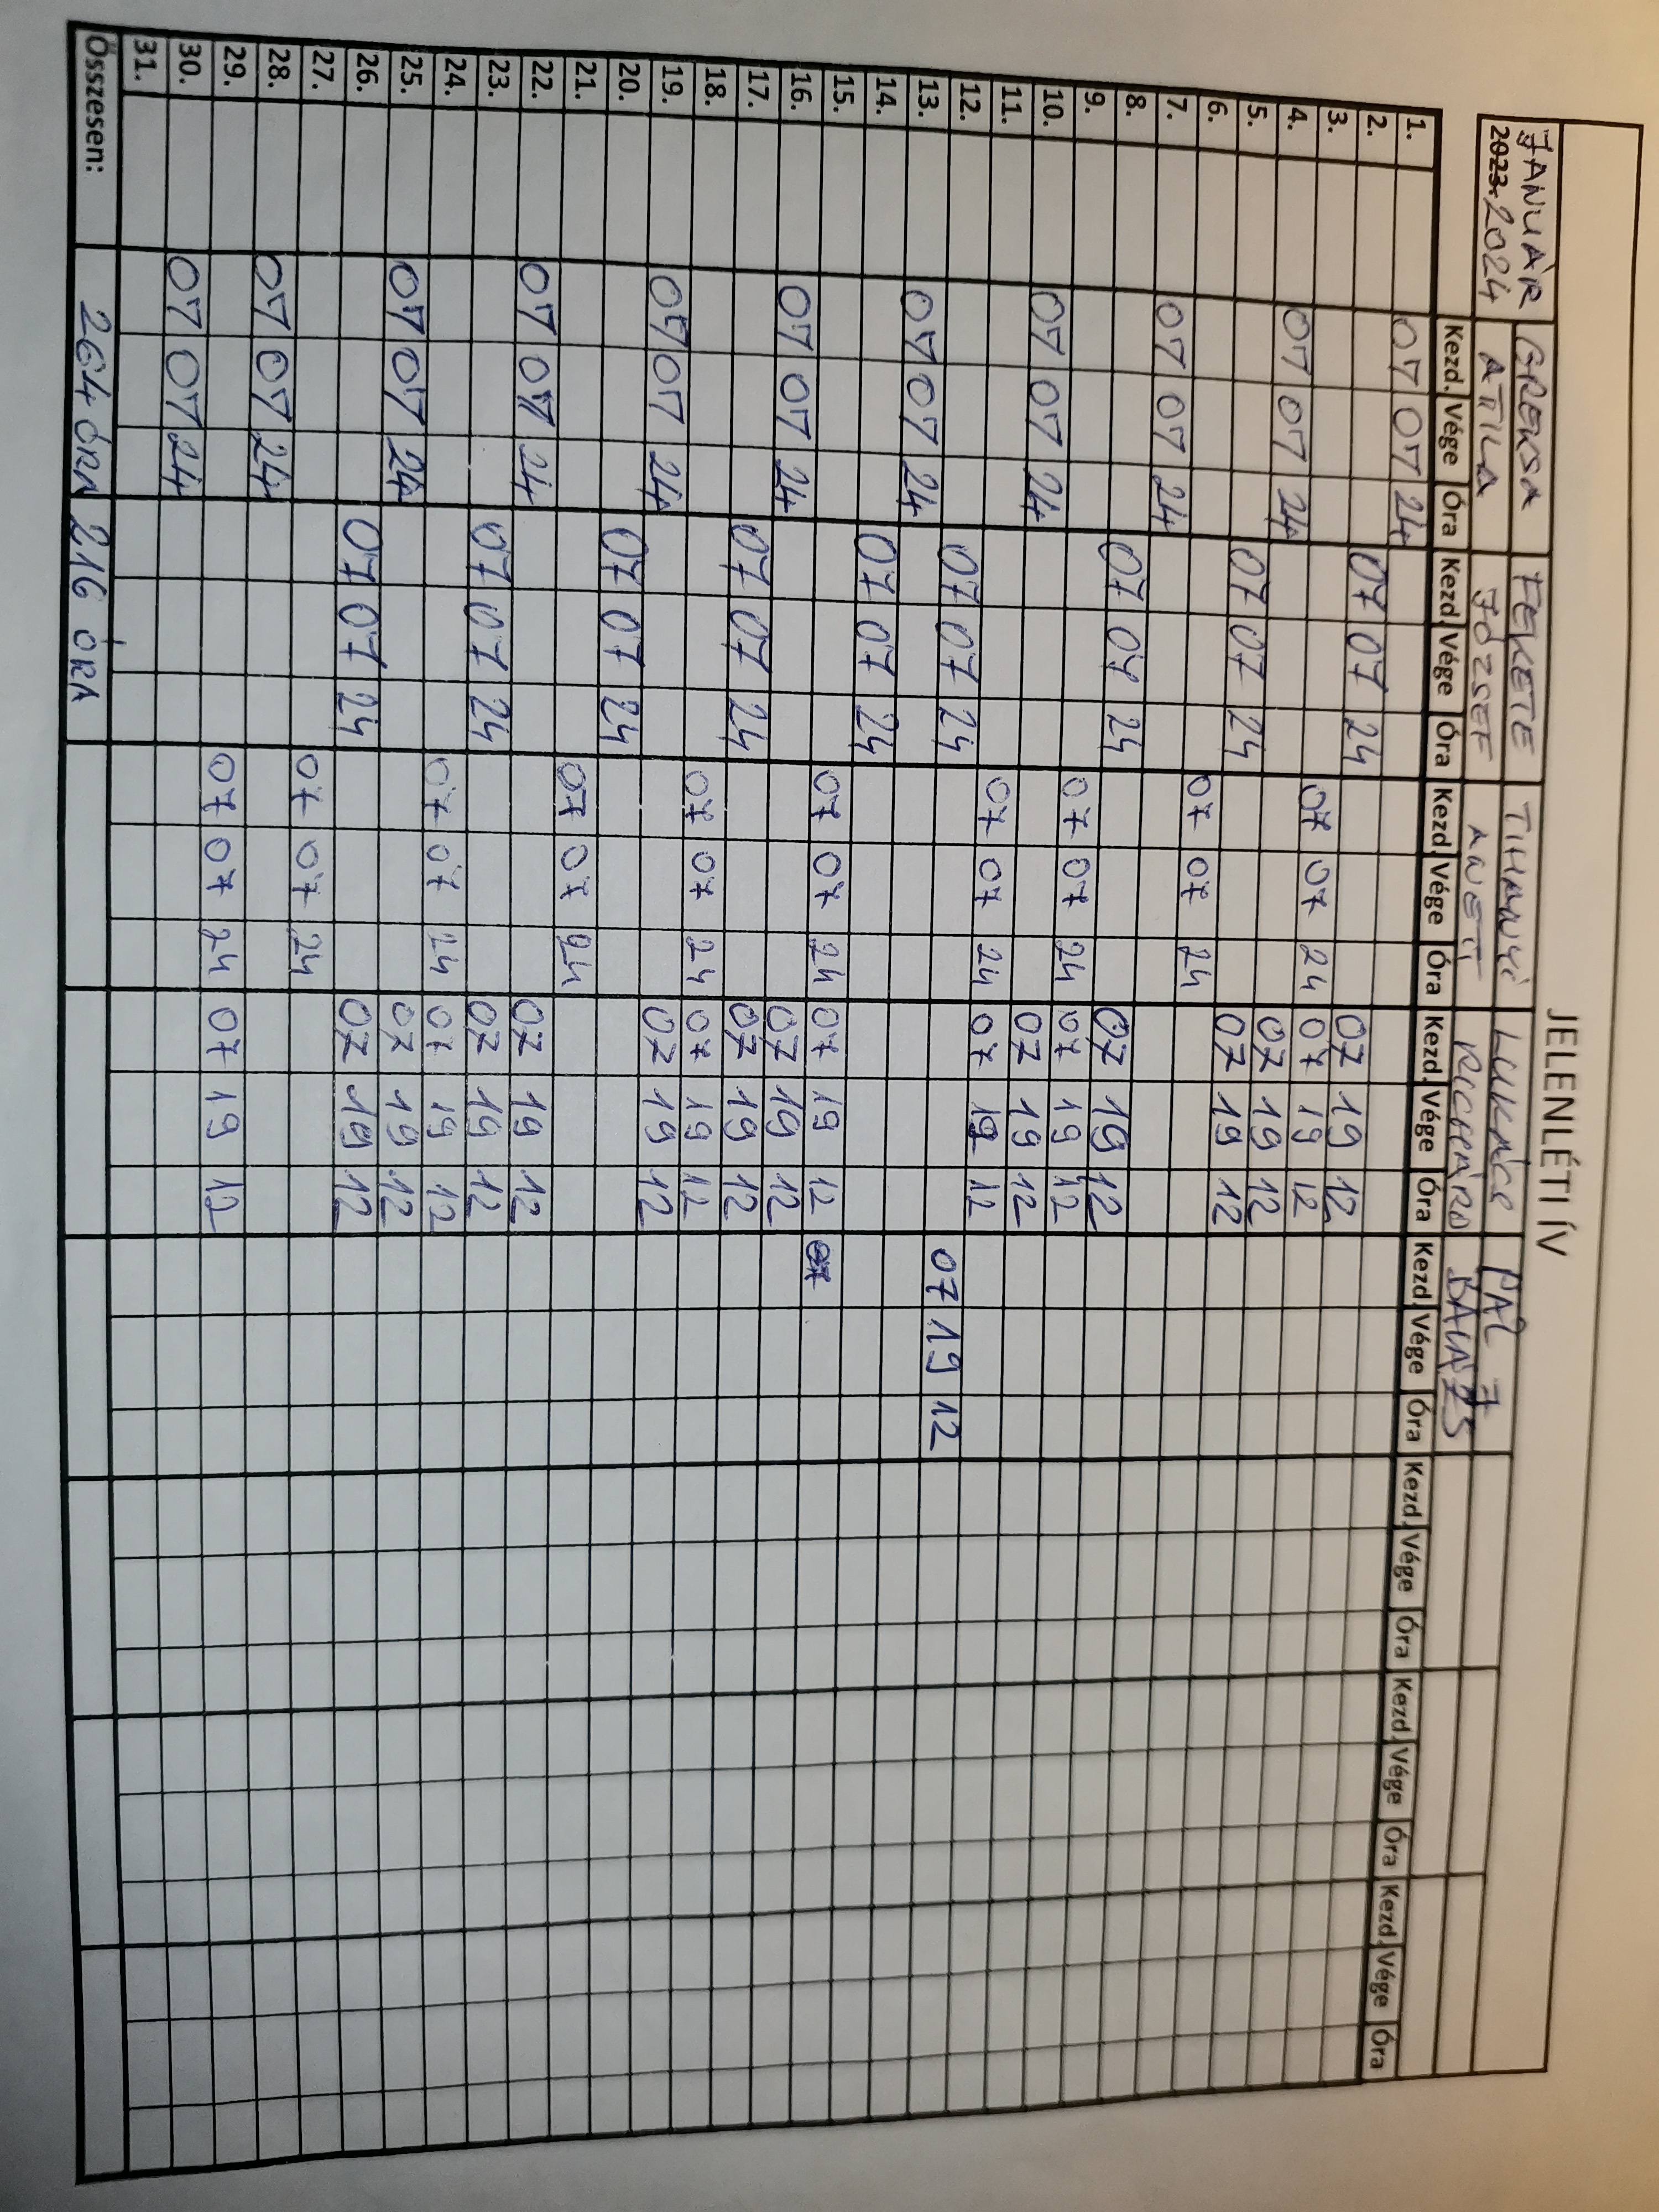 JELENLÉTI ÍV
JANUÁR GREKSA FEKETE TIHANYI LUKÁCS PÁL
2023. 2024 ATTILA JÓZSEF ANETT RICHÁRD BALÁZS
Kezd. Vége Óra Kezd Vége Óra Kezd Vége Óra Kezd. Vége Óra Kezd Vége Óra Kezd Vége Óra Kezd Vége Óra Kezd Vége Óra
1. 07 07 24
2. 07 07 24 07 19 12
3. 07 07 24 07 19 12
4. 07 07 24 07 19 12
5. 07 07 24 07 19 12
6. 07 07 24
7. 07 07 24
8. 07 07 24 07 19 12
9. 07 07 24 07 19 12
10. 07 07 24 07 19 12
11. 07 07 24 07 19 12
12. 07 07 24 07 19 12
13. 07 07 24
14. 07 07 24
15. 07 07 24 07 19 12
16. 07 07 24 07 19 12
17. 07 07 24 07 19 12
18. 07 07 24 07 19 12
19. 07 07 24 07 19 12
20. 07 07 24
21. 07 07 24
22. 07 07 24 07 19 12
23. 07 07 24 07 19 12
24. 07 07 24 07 19 12
25. 07 07 24 07 19 12
26. 07 07 24 07 19 12
27. 07 07 24
28. 07 07 24
29. 07 07 24 07 19 12
30. 07 07 24
31.
Összesen: 264 ÓRA 216 ÓRA